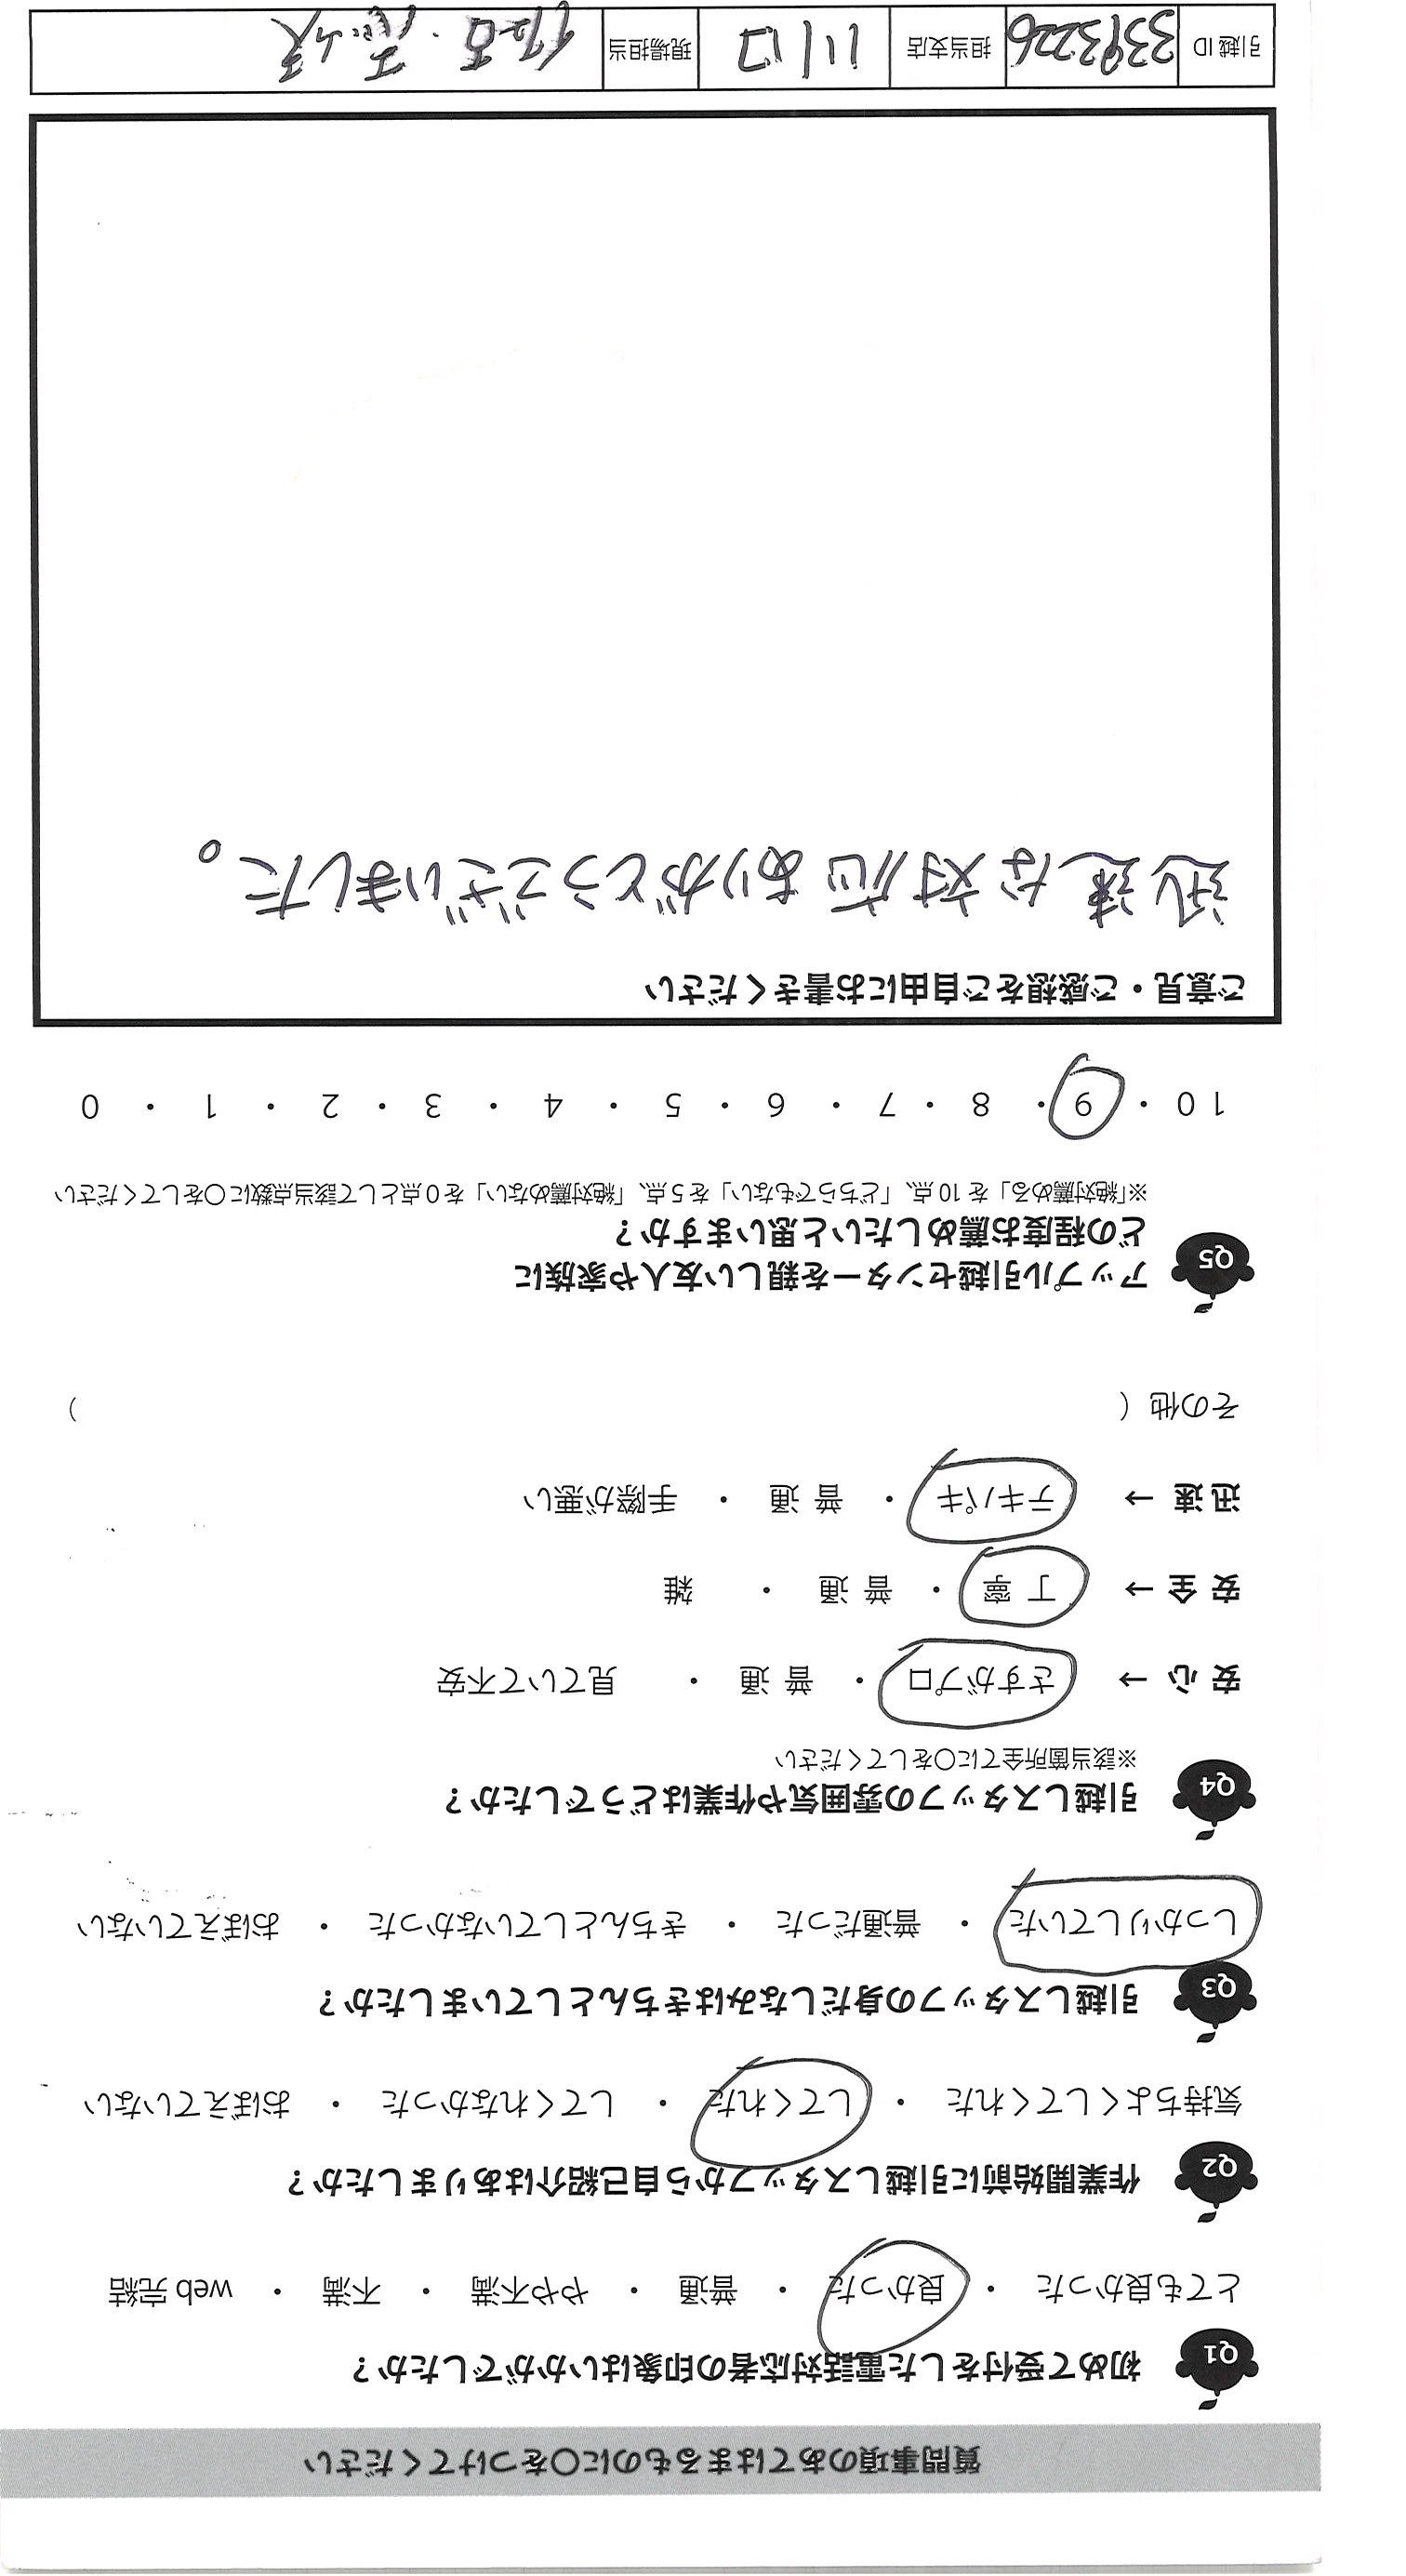 質問事項のあてはまるものに○をつけてください
Q1 初めて受付をした電話対応者の印象はいかがでしたか？
とても良かった ・ 良かった ・ 普通 ・ やや不満 ・ 不満 ・ web 完結
Q2 作業開始前に引越しスタッフから自己紹介はありましたか？
気持ちよくしてくれた ・ してくれた ・ してくれなかった ・ おぼえていない
Q3 引越しスタッフの身だしなみはきちんとしていましたか？
しっかりしていた ・ 普通だった ・ きちんとしていなかった ・ おぼえていない
Q4 引越しスタッフの雰囲気や作業はどうでしたか？
※該当箇所全てに○をしてください
安 心 → さすがプロ ・ 普 通 ・ 見ていて不安
安 全 → 丁 寧 ・ 普 通 ・ 雑
迅 速 → テキパキ ・ 普 通 ・ 手際が悪い
その他（ ）
Q5 アップル引越センターを親しい友人や家族に
どの程度お薦めしたいと思いますか？
※「絶対薦める」を 10 点、「どちらでもない」を 5 点、「絶対薦めない」を 0 点として該当点数に○をしてください
10 ・ 9 ・ 8 ・ 7 ・ 6 ・ 5 ・ 4 ・ 3 ・ 2 ・ 1 ・ 0
ご意見・ご感想をご自由にお書きください
迅速な対応ありがとうございました。
引越 ID 3393226 担当支店 川口 現場担当